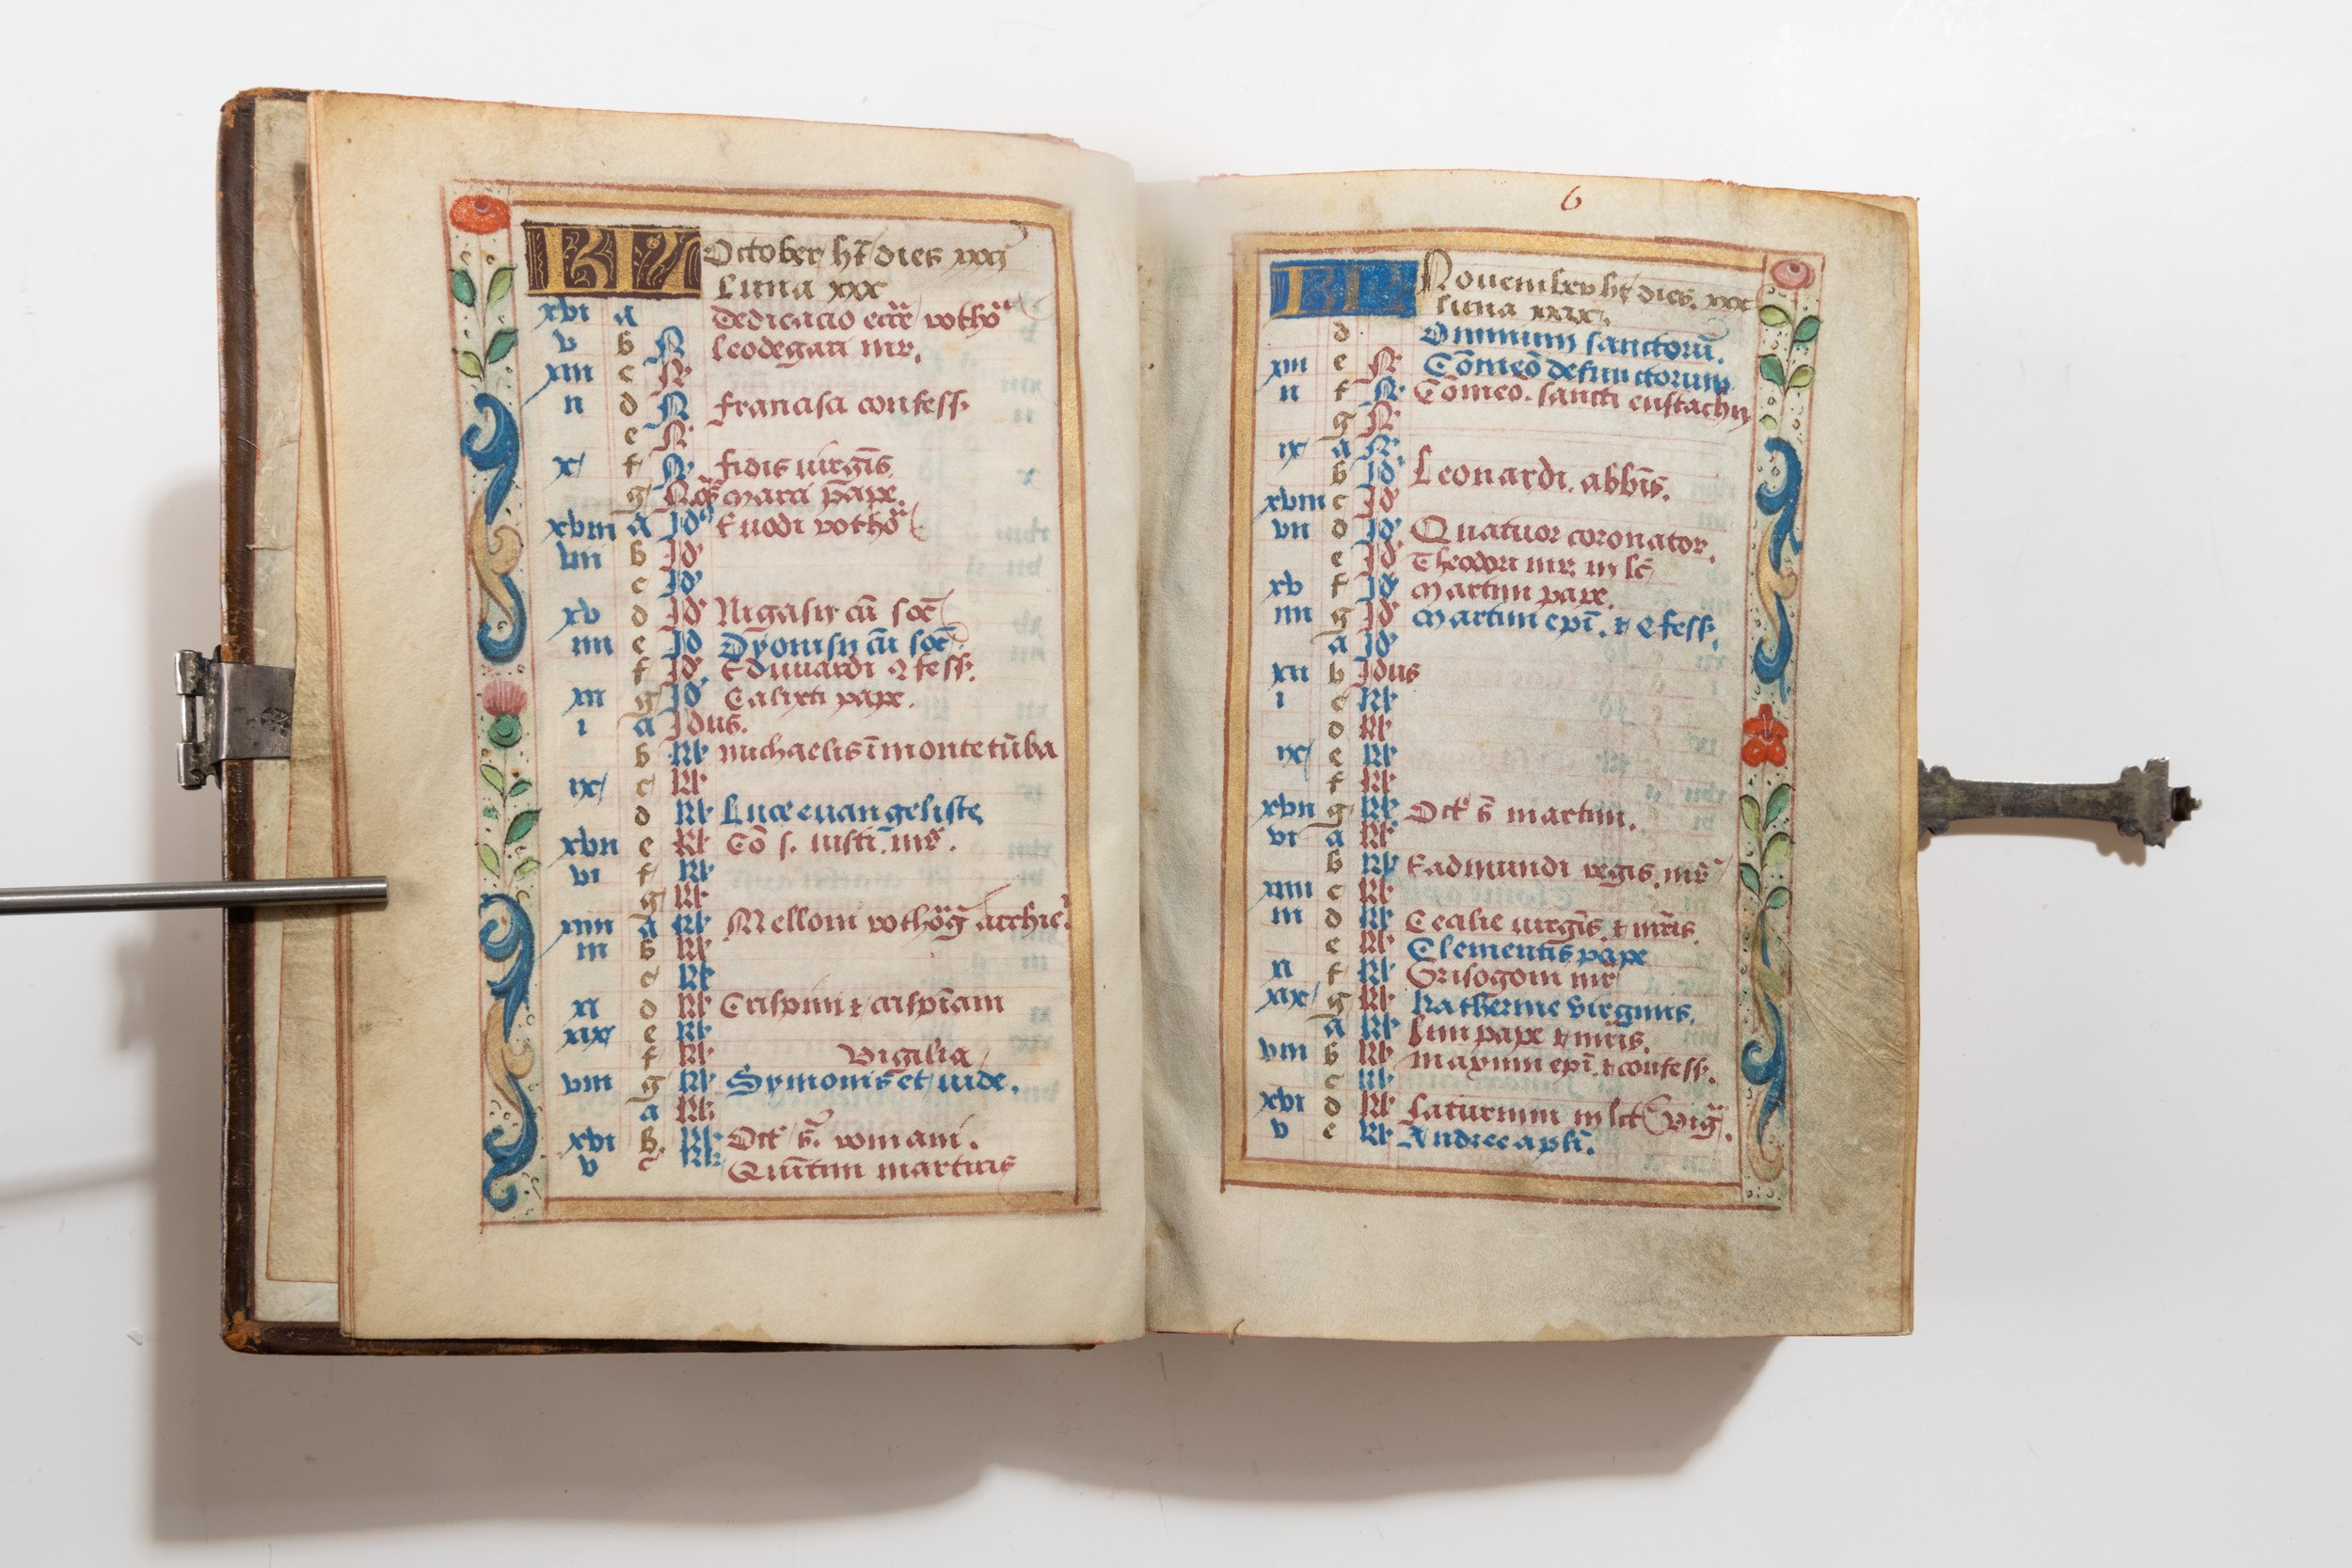 KL October ht dies xxxj
Luna xxx
xvi a Dedicacio eccle rotho
v b N Leodegarii mr.
xiii c N
ii d N francisci confess
e N
x f N fidis uirgis
g Nos marci pape.
xviii a Id Euodi rotho
vii b Id
c Id
xv d Id Nigasii cu soc
iiii e Id Dyonisii cu soc
f Id Eduuardi 9fess.
xii g Id Calixti pape.
i a Idus.
b kl michaelis i monte tuba
ix c kl
d kl Luce euangeliste
xvii e kl Co s. iusti. mr.
vi f kl
g kl
xiiii a kl Melloni rothog archie.
iii b kl
c kl
xi d kl Crispini & crispiani
xix e kl
f kl Vigilia
viii g kl Symonis et iude.
a kl
xvi b kl Oct s. romani.
v c kl Quitini martiris
6
KL Nouember ht dies. xxx
luna xxix.
d Omnium sanctoru.
xiii e N Comeo defunctorum
ii f N Comeo. sancti eustachii
g N
ix a N
b Id Leonardi. abbis.
xviii c Id
vii d Id Quatuor coronator.
e Id Theodori mr. iii lc
xv f Id Martini pape.
iiii g Id Martini epi. & 9fess.
a Id
xii b Idus
i c kl
d kl
ix e kl
f kl
xvii g kl Oct s martini.
vi a kl
b kl Eadmundi regis. mr
xiiii c kl
iii d kl Cecilie uirgis. & mris.
e kl Clementis pape
xi f kl Grisogoni mr
xix g kl Katherine virginis.
a kl Lini pape & mris.
viii b kl maximi epi. & confess.
c kl
xvi d kl Saturnini iii lct vig.
v e kl Andree apli.